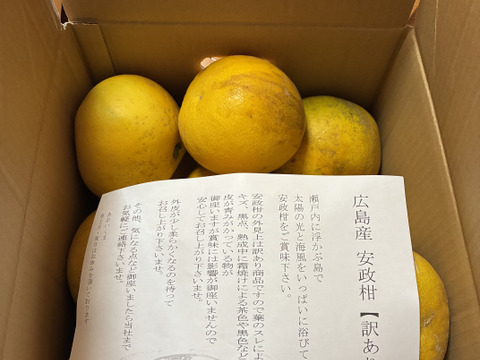 広島産 安政柑 【訳あり
瀬戸内に浮かぶ島で
太陽の光と海風をいっぱいに浴びて
安政柑をご賞味下さい。
安政柑の外見上は訳あり商品ですので葉のスレによ
キズ、黒点、熟成中に霜焼けによる茶色や黒色など
皮が青みがかっている物が
御座いますが賞味には影響が御座いませんので
安心してお召し上がり下さいませ。
外皮が少し柔らかくなるのを待って
お召し上がり下さいませ。
その他、気になる点など御座いましたら当社まで
お気軽にご連絡下さいませ。